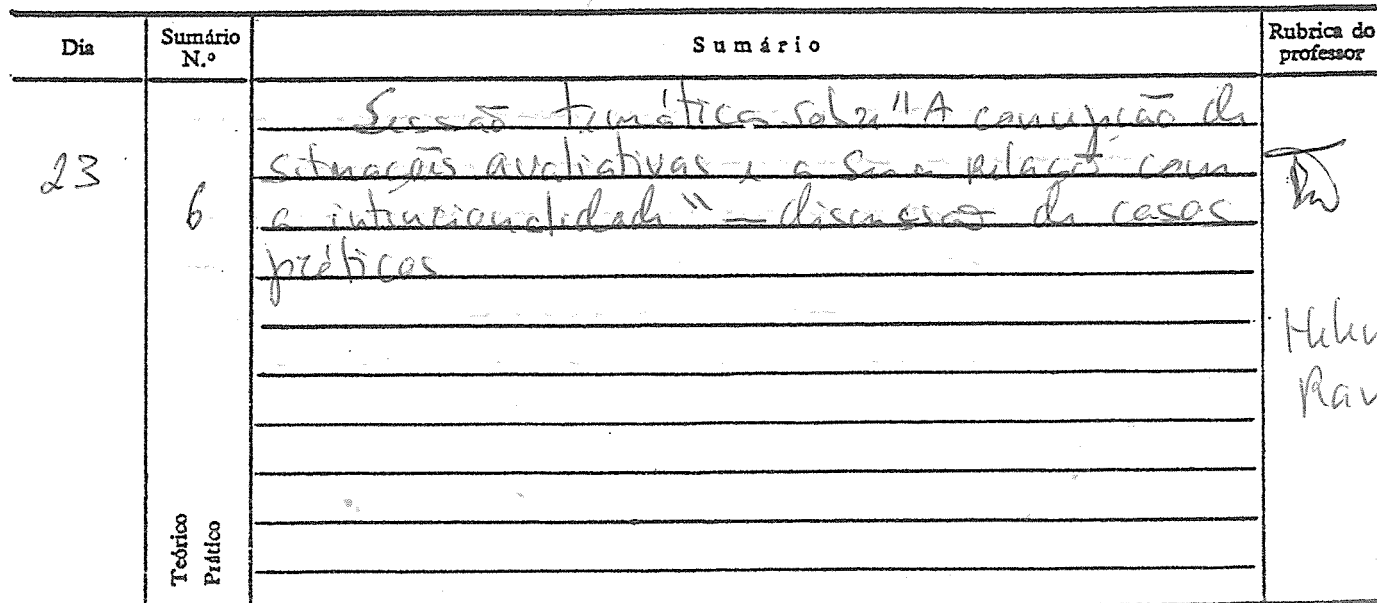 Dia
Sumário
N.º
Sumário
Rubrica do
professor
Sessão temática sobre "A concepção de
situações avaliativas e a sua relação com
a intencionalidade" – discussão de casos
práticos
23
6
Teórico
Prático